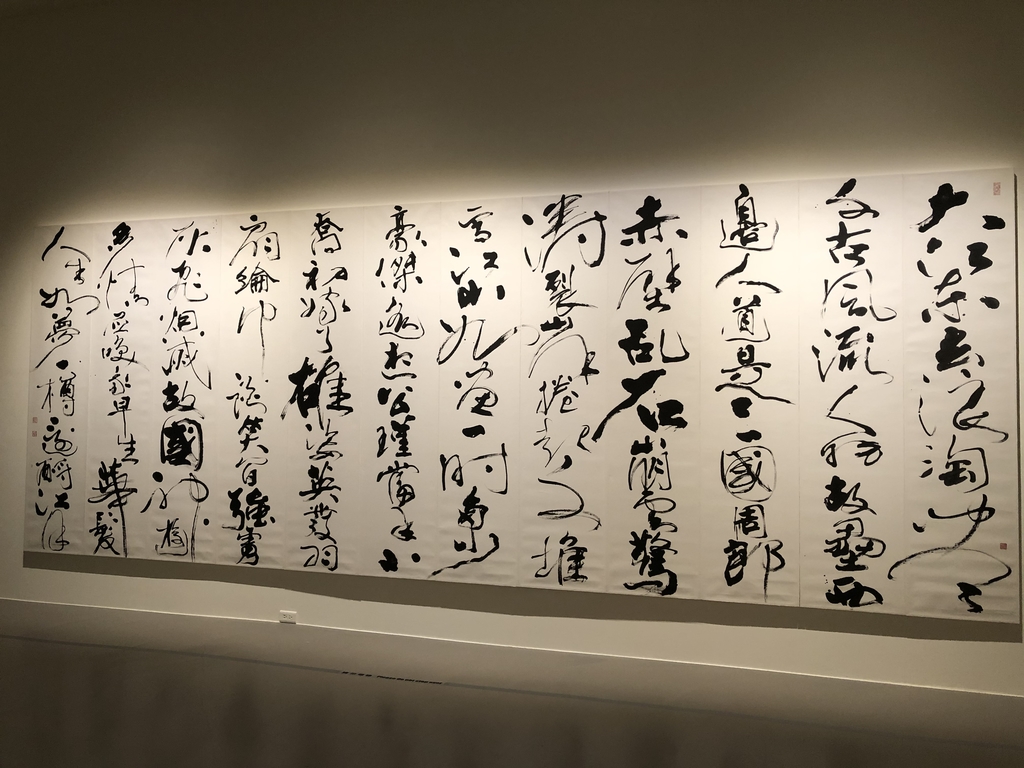 大江東去浪淘盡
千古風流人物故壘西
邊人道是三國周郎
赤壁乱石崩雲驚
濤裂岸捲起千堆
雪江山如畫一時多少
豪傑遙想公瑾當年小
喬初嫁了雄姿英發羽
扇綸巾談笑間強虜
灰飛烟滅故國神遊
多情應咲我早生華髮
人生如夢一樽還酹江月